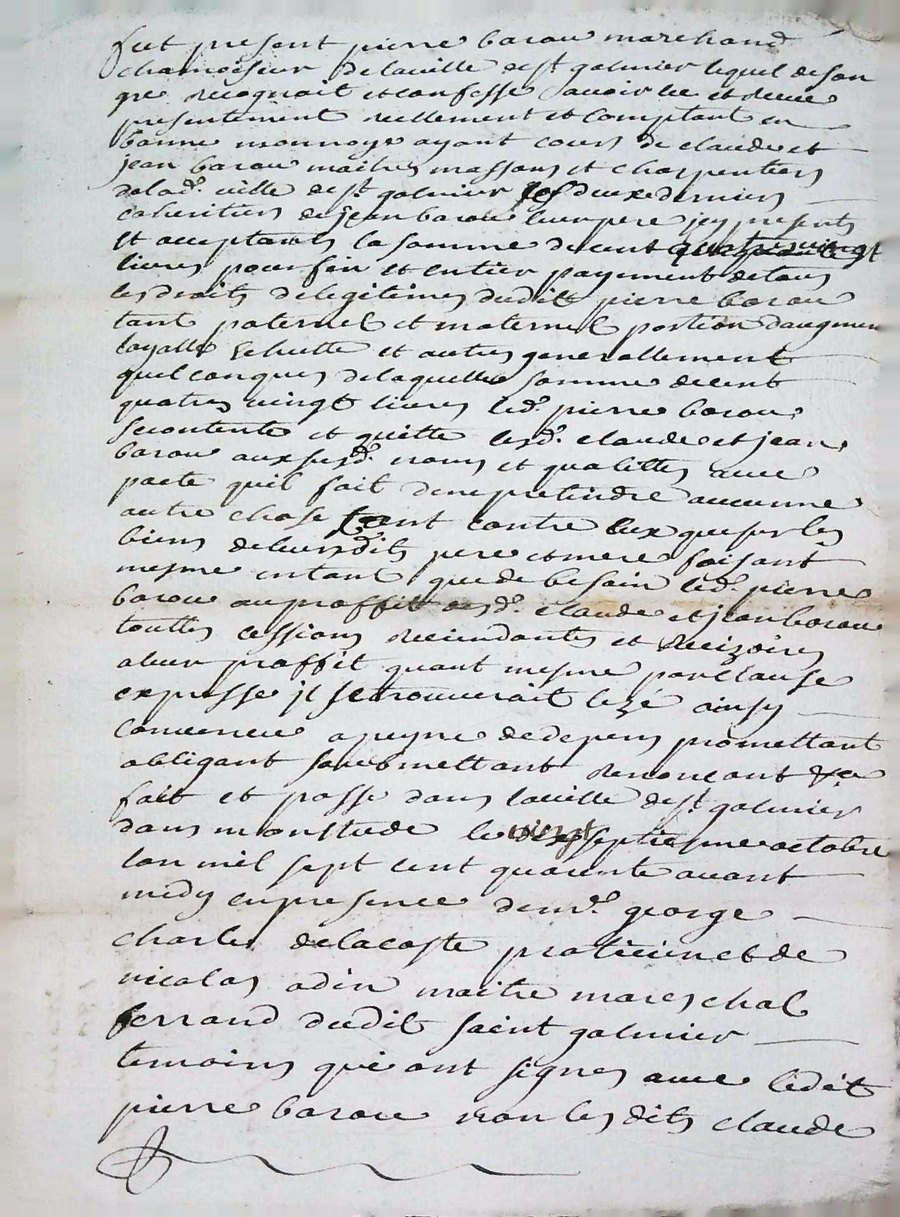 fut present pierre barou marchand
chamoiseur delaville de st galmier lequel de son
gre recognoit et confesse avoir eu et receu
presentement reellement et comptant en
bonne monnoye ayant cours de claude et
jean barou maitres massons et charpentiers
delad. ville de st galmier les deux derniers
coheritiers de jean barou leur pere jcy presents
et acceptants la somme de cent quatre vingt
livres pour fin et entier payement de tous
les droits de legitimes dudit pierre barou
tant paternel et maternel portion daugment
layalle Echutte et autres generallement
quelconques de laquelle somme de cent
quatres vingt livres led. pierre barou
se contente et quitte lesd. claude et jean
barou aux susd. noms et qualittes avec
pacte quil fait de ne pretendre aucunne
autre chose tant contre eux que sur les
biens de leursdits pere et mere faisant
mesme entant que de besoin led. pierre
barou au proffit desd. claude et jean barou
touttes cessions rescindantes et rescizoires
a leur proffit quant mesme par clause
expresse jl se trouverait lezé ainsy
convenu a peyne de depens promettant
obligant soubmettant renoncant &a
fait et passé dans laville de st galmier
dans mon etude le vingt septiesme octobre
lan mil sept cent quarente avant
midy en presence de mr. george
charles delacoste praticien et de
nicolas odin maitre mareschal
ferrand dudit saint galmier
temoins qui ont signes avec ledit
pierre barou non les dits claude